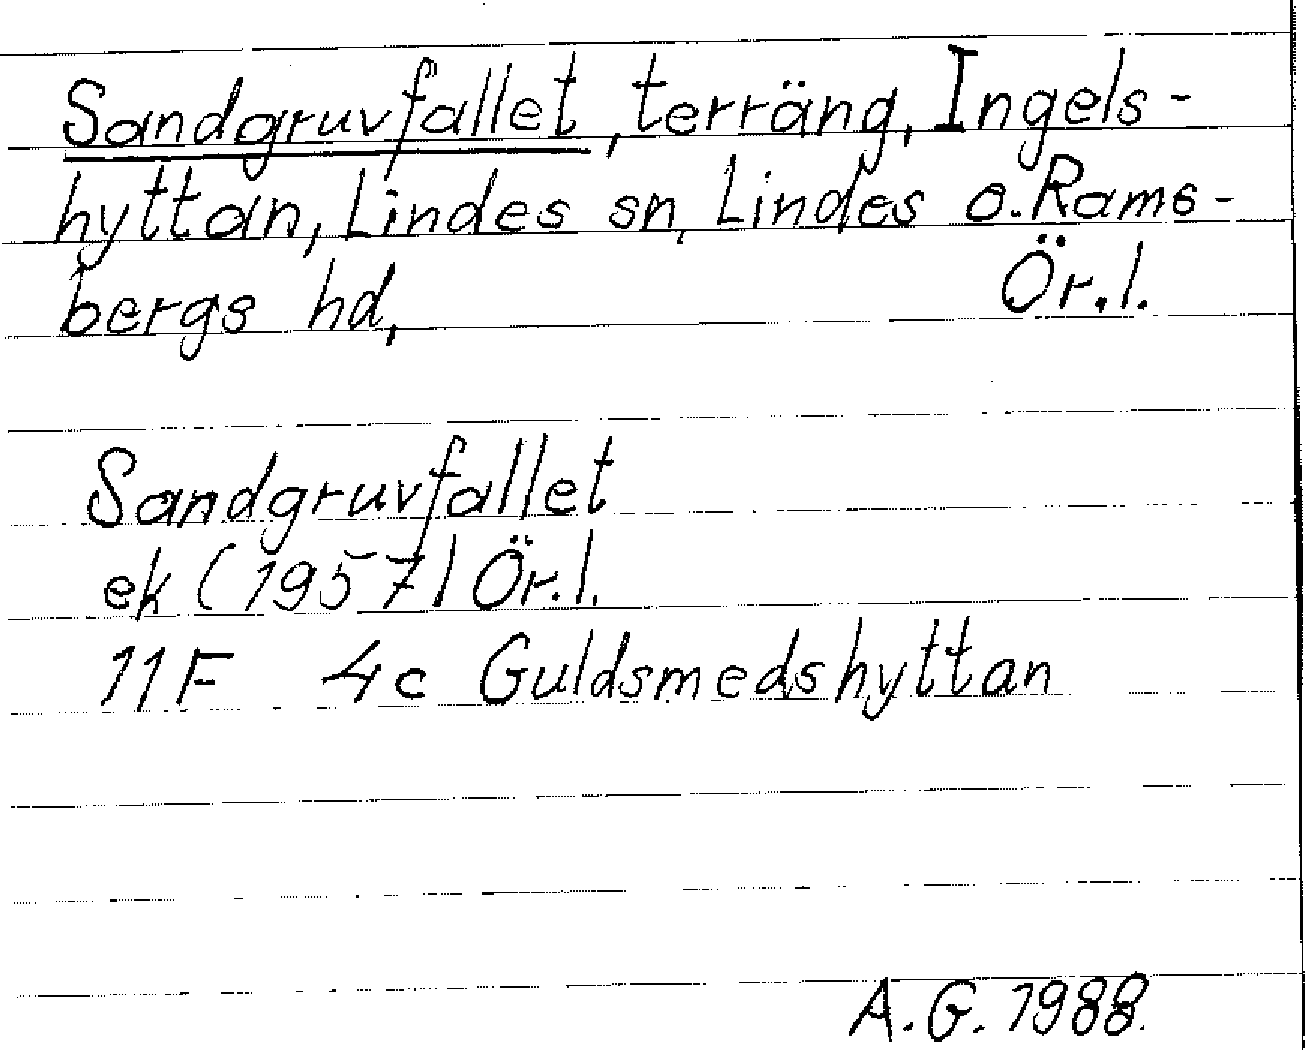 Sandgruvfallet, terräng, Ingels-
hyttan, Lindes sn, Lindes o. Rams-
bergs hd, Ör. l.
Sandgruvfallet
ek (1957) Ör. l.
11F 4c Guldsmedshyttan
A.G. 1988.